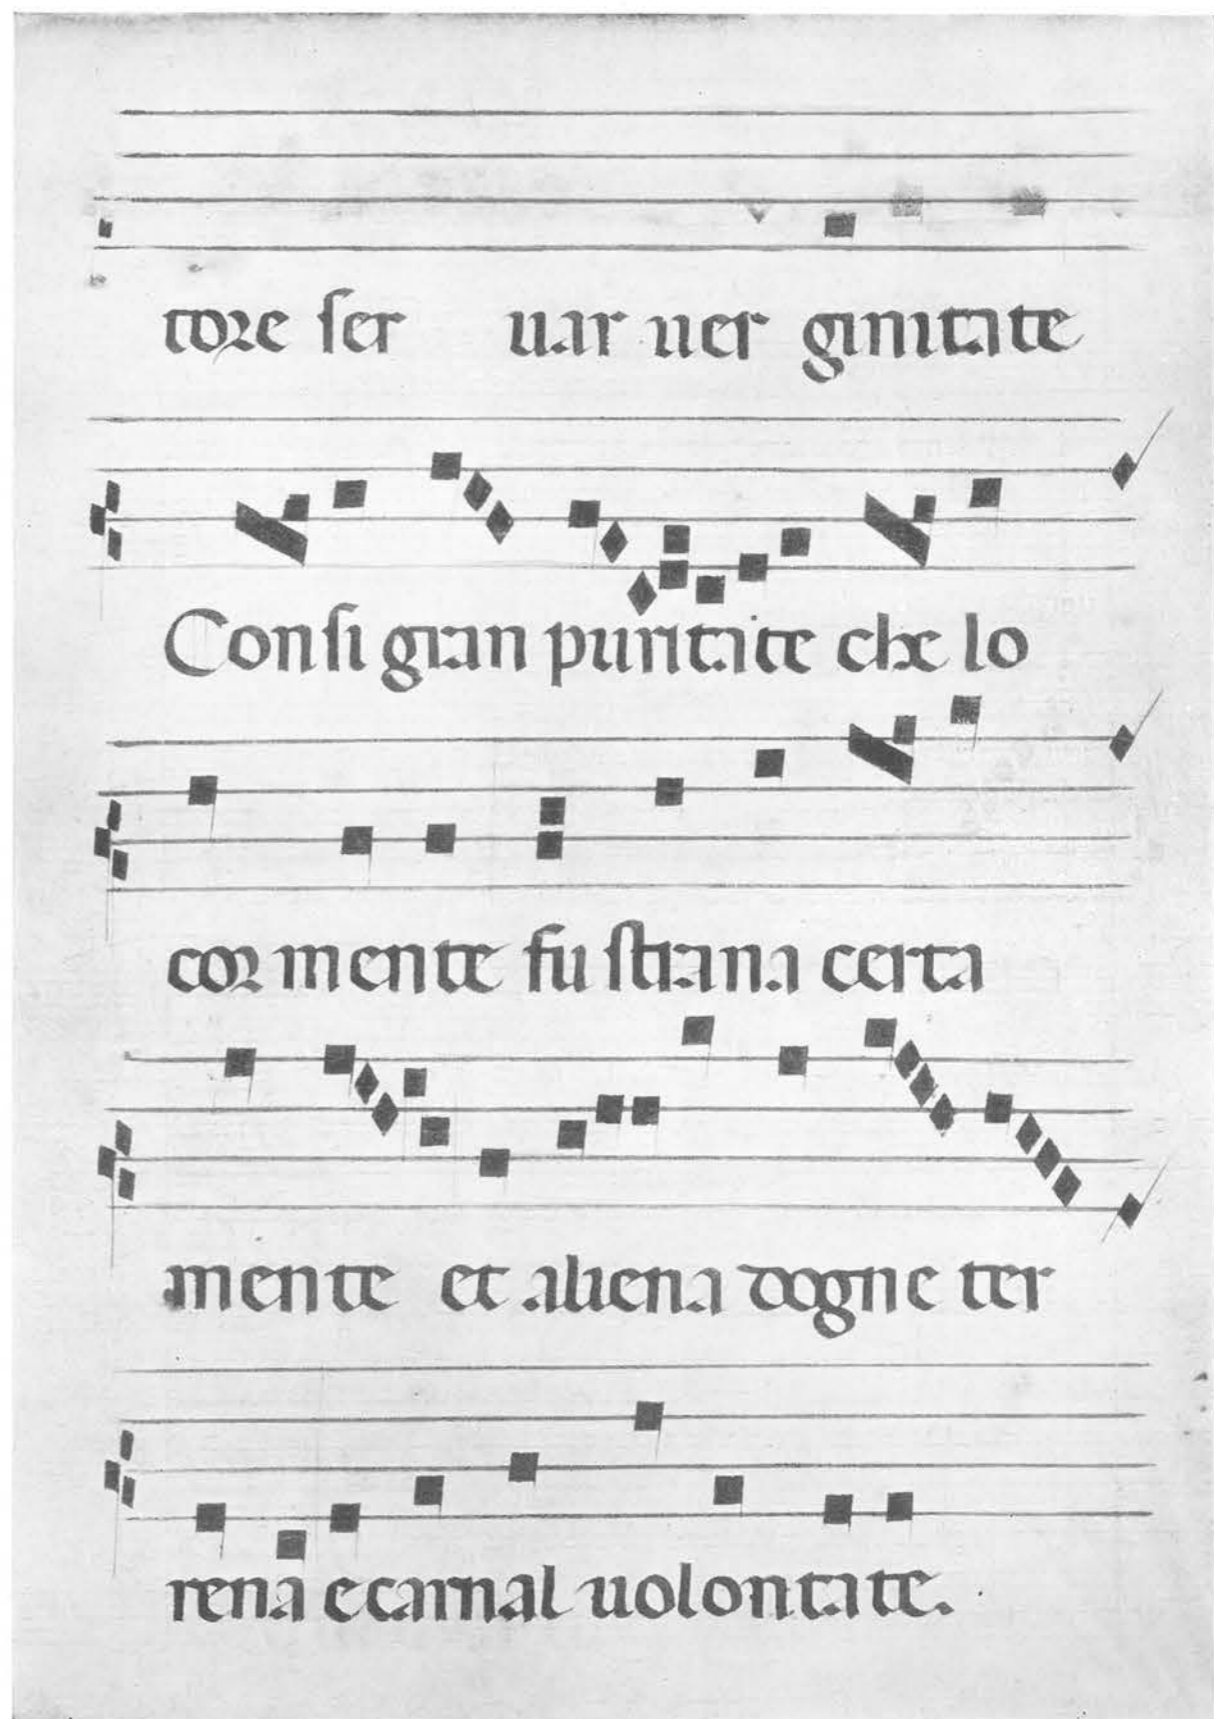 tore ser uar uer ginitate
Con si gran puritate che lo
cor mente fu strana certa
mente et aliena dogne ter
rena e carnal uolontate.